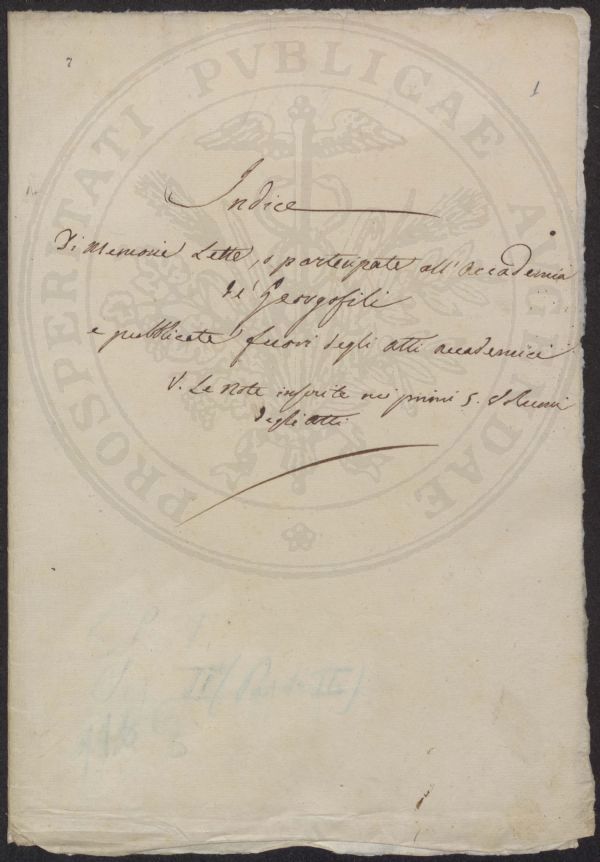 7
1
PROSPERITATI PVBLICAE AVGENDAE
Indice
Di Memorie Lette, o partecipate all'Accademia
de' Georgofili
e pubblicate fuori degli atti accademici
V. Le Note inserite nei primi 5. Volumi
degli atti
II (Parte II)